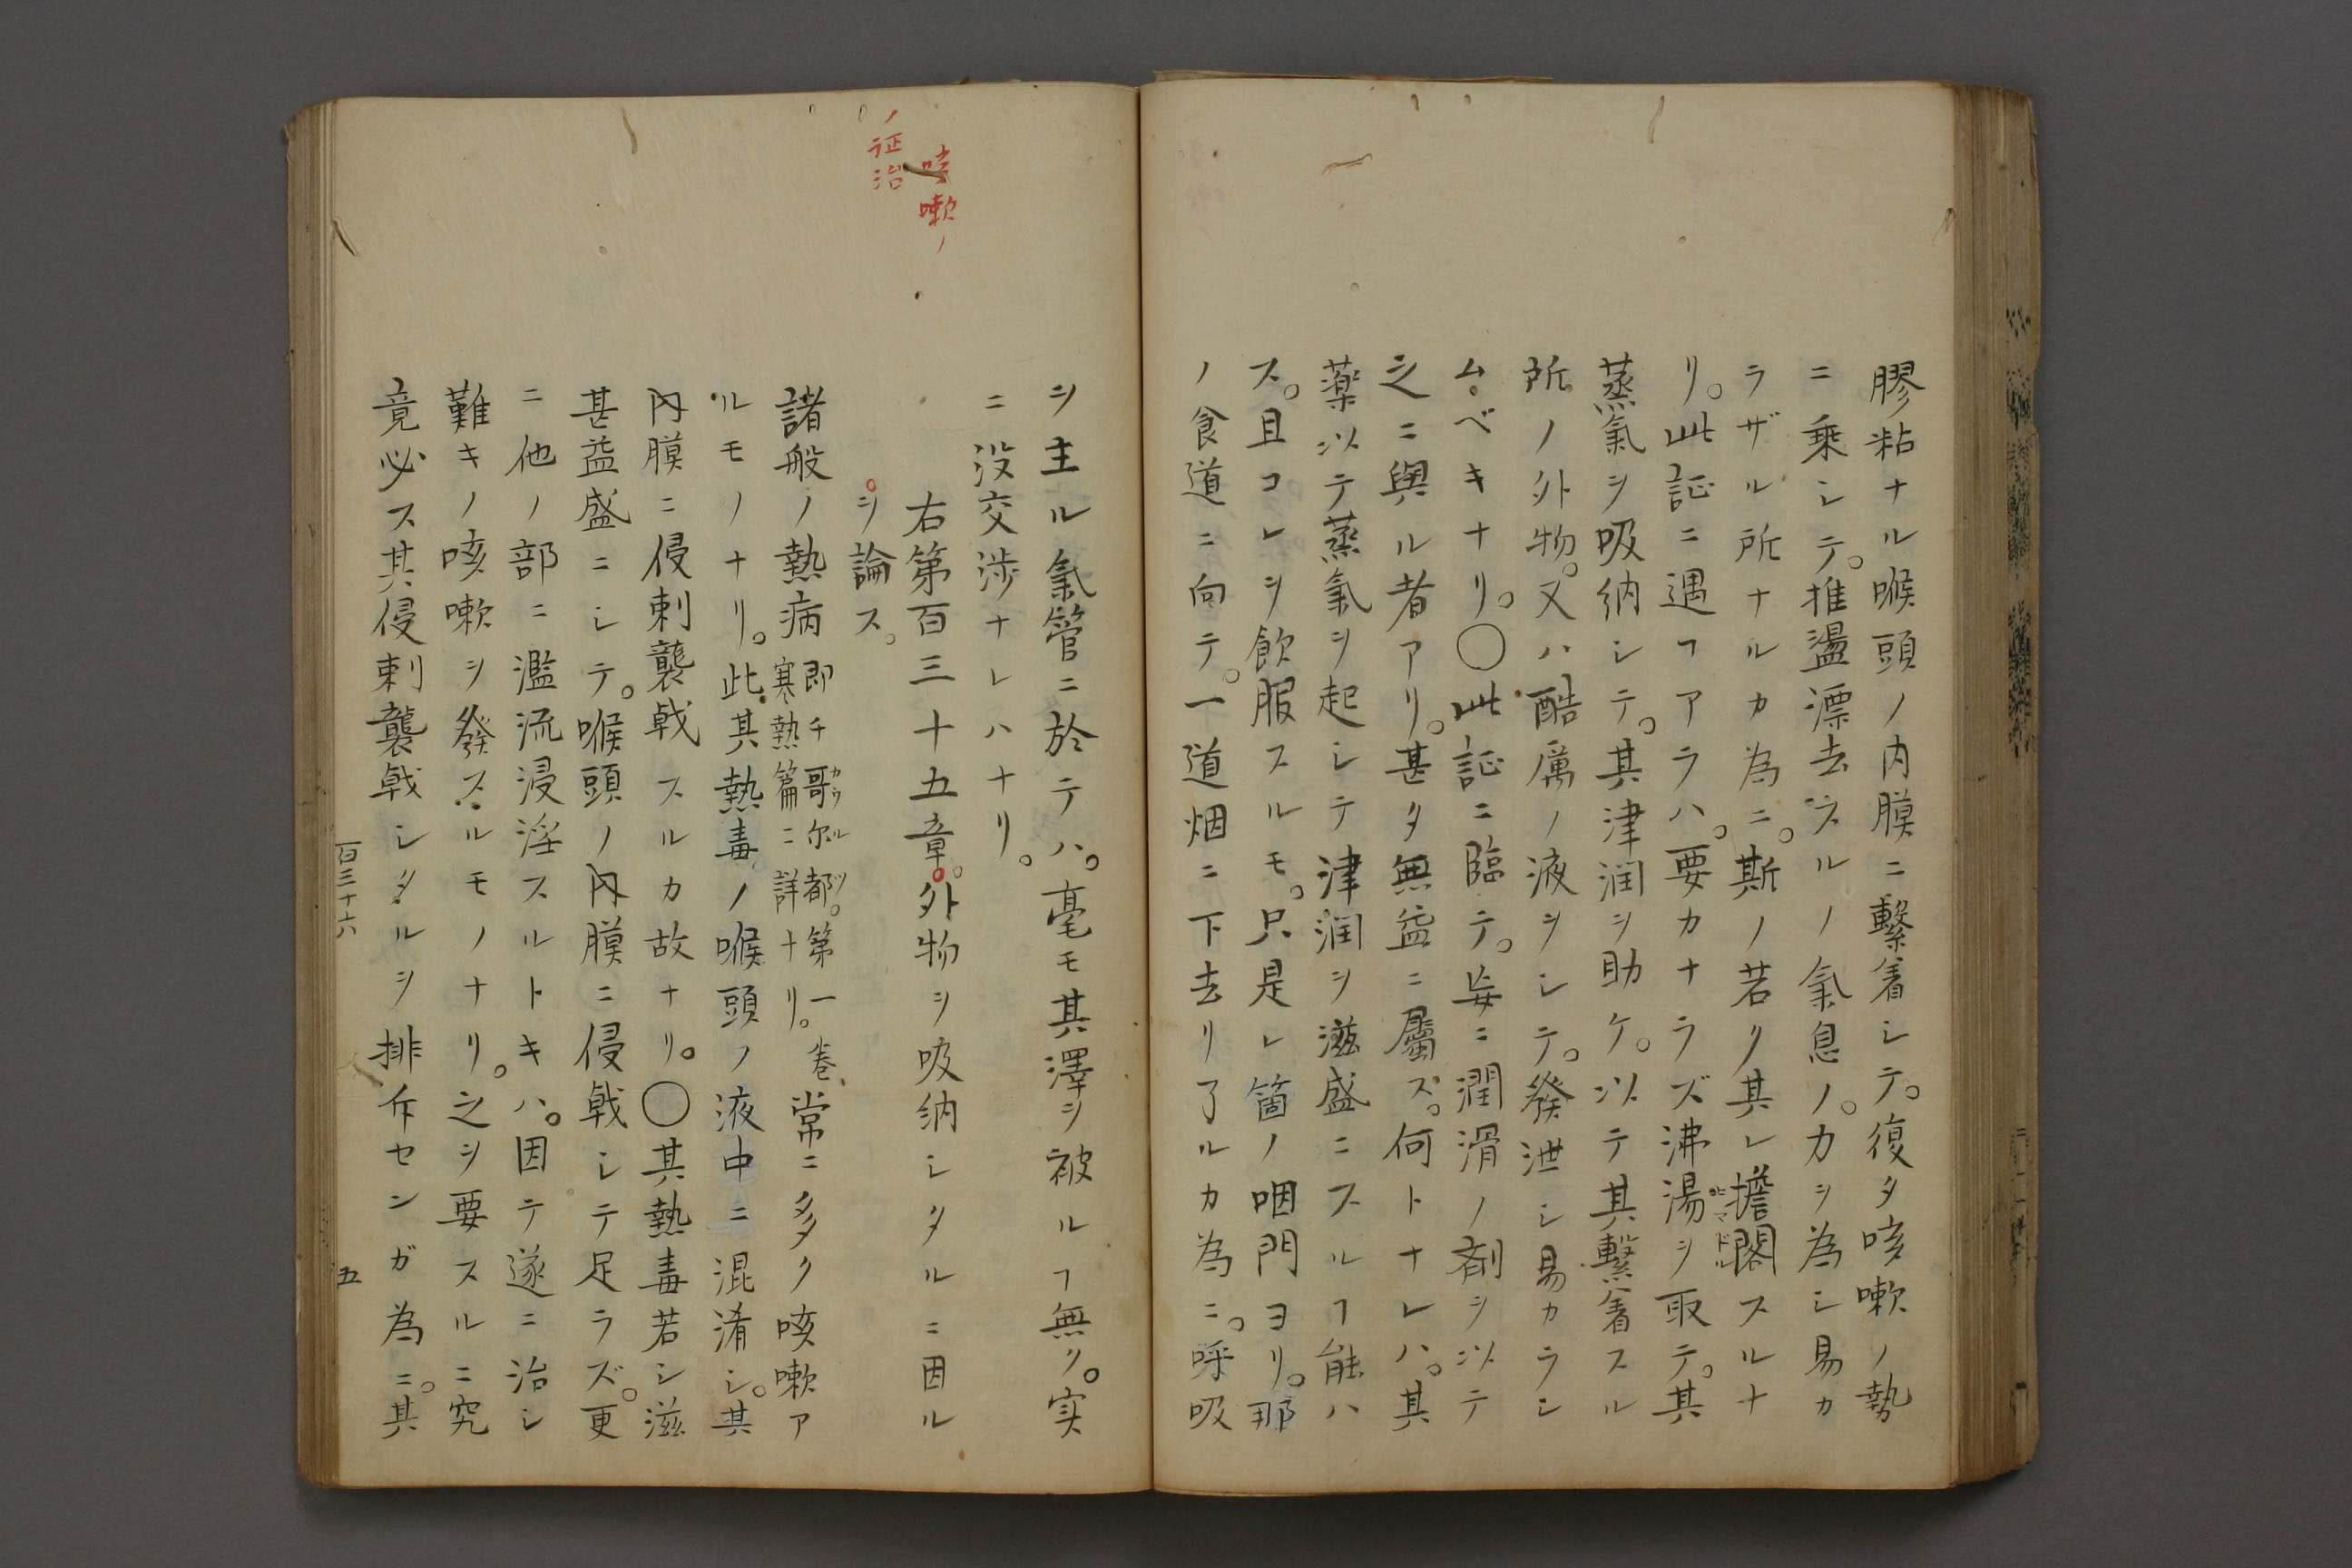 膠粘ナル喉頭ノ内膜ニ繫着シテ。復タ咳嗽ノ勢
ニ乗シテ。推盪漂去スルノ氣息ノ。力ヲ為シ易カ
ラザル所ナルカ為ニ。斯ノ若ク其レ擔閣スルナ
リ。此証ニ遇フアラハ。要カナラズ沸湯ヲ取テ。其
蒸氣ヲ吸納シテ。其津润ヲ助ケ。以テ其繫着スル
所ノ外物。又ハ酷厲ノ液ヲシテ。發泄シ易カラシ
ムベキナリ。〇此証ニ臨テ。妄ニ潤滑ノ剤ヲ以テ
之ニ與ル者アリ。甚タ無益ニ屬ス。何トナレハ。其
薬以テ蒸氣ヲ起シテ津润ヲ滋盛ニスルヿ能ハ
ス。且コレヲ飲服スルモ。只是レ箇ノ咽門ヨリ。那
ノ食道ニ向テ。一道烟ニ下去リ了ルカ為ニ。呼吸
ヲ主ル氣管ニ於テハ。毫モ其澤ヲ被ルヿ無ク。実
ニ没交渉ナレハナリ。
咳嗽ノ
ノ征治
右第百三十五章。外物ヲ吸納シタルニ因ル
ヲ論ス。
諸般ノ熱病即チ哥尔都。第一巻寒熱篇ニ詳ナリ。常ニ多ク咳嗽ア
ルモノナリ。此其熱毒ノ喉頭ノ液中ニ混淆シ。其
内膜ニ侵刺襲戟スルカ故ナリ。〇其熱毒若シ滋
甚益盛ニシテ。喉頭ノ内膜ニ侵戟シテ足ラズ。更
ニ他ノ部ニ濫流浸淫スルトキハ。因テ遂ニ治シ
難キノ咳嗽ヲ發スルモノナリ。之ヲ要スルニ究
竟必ス其侵刺襲戟シタルヲ排斥センガ為ニ。其
百三十六
五